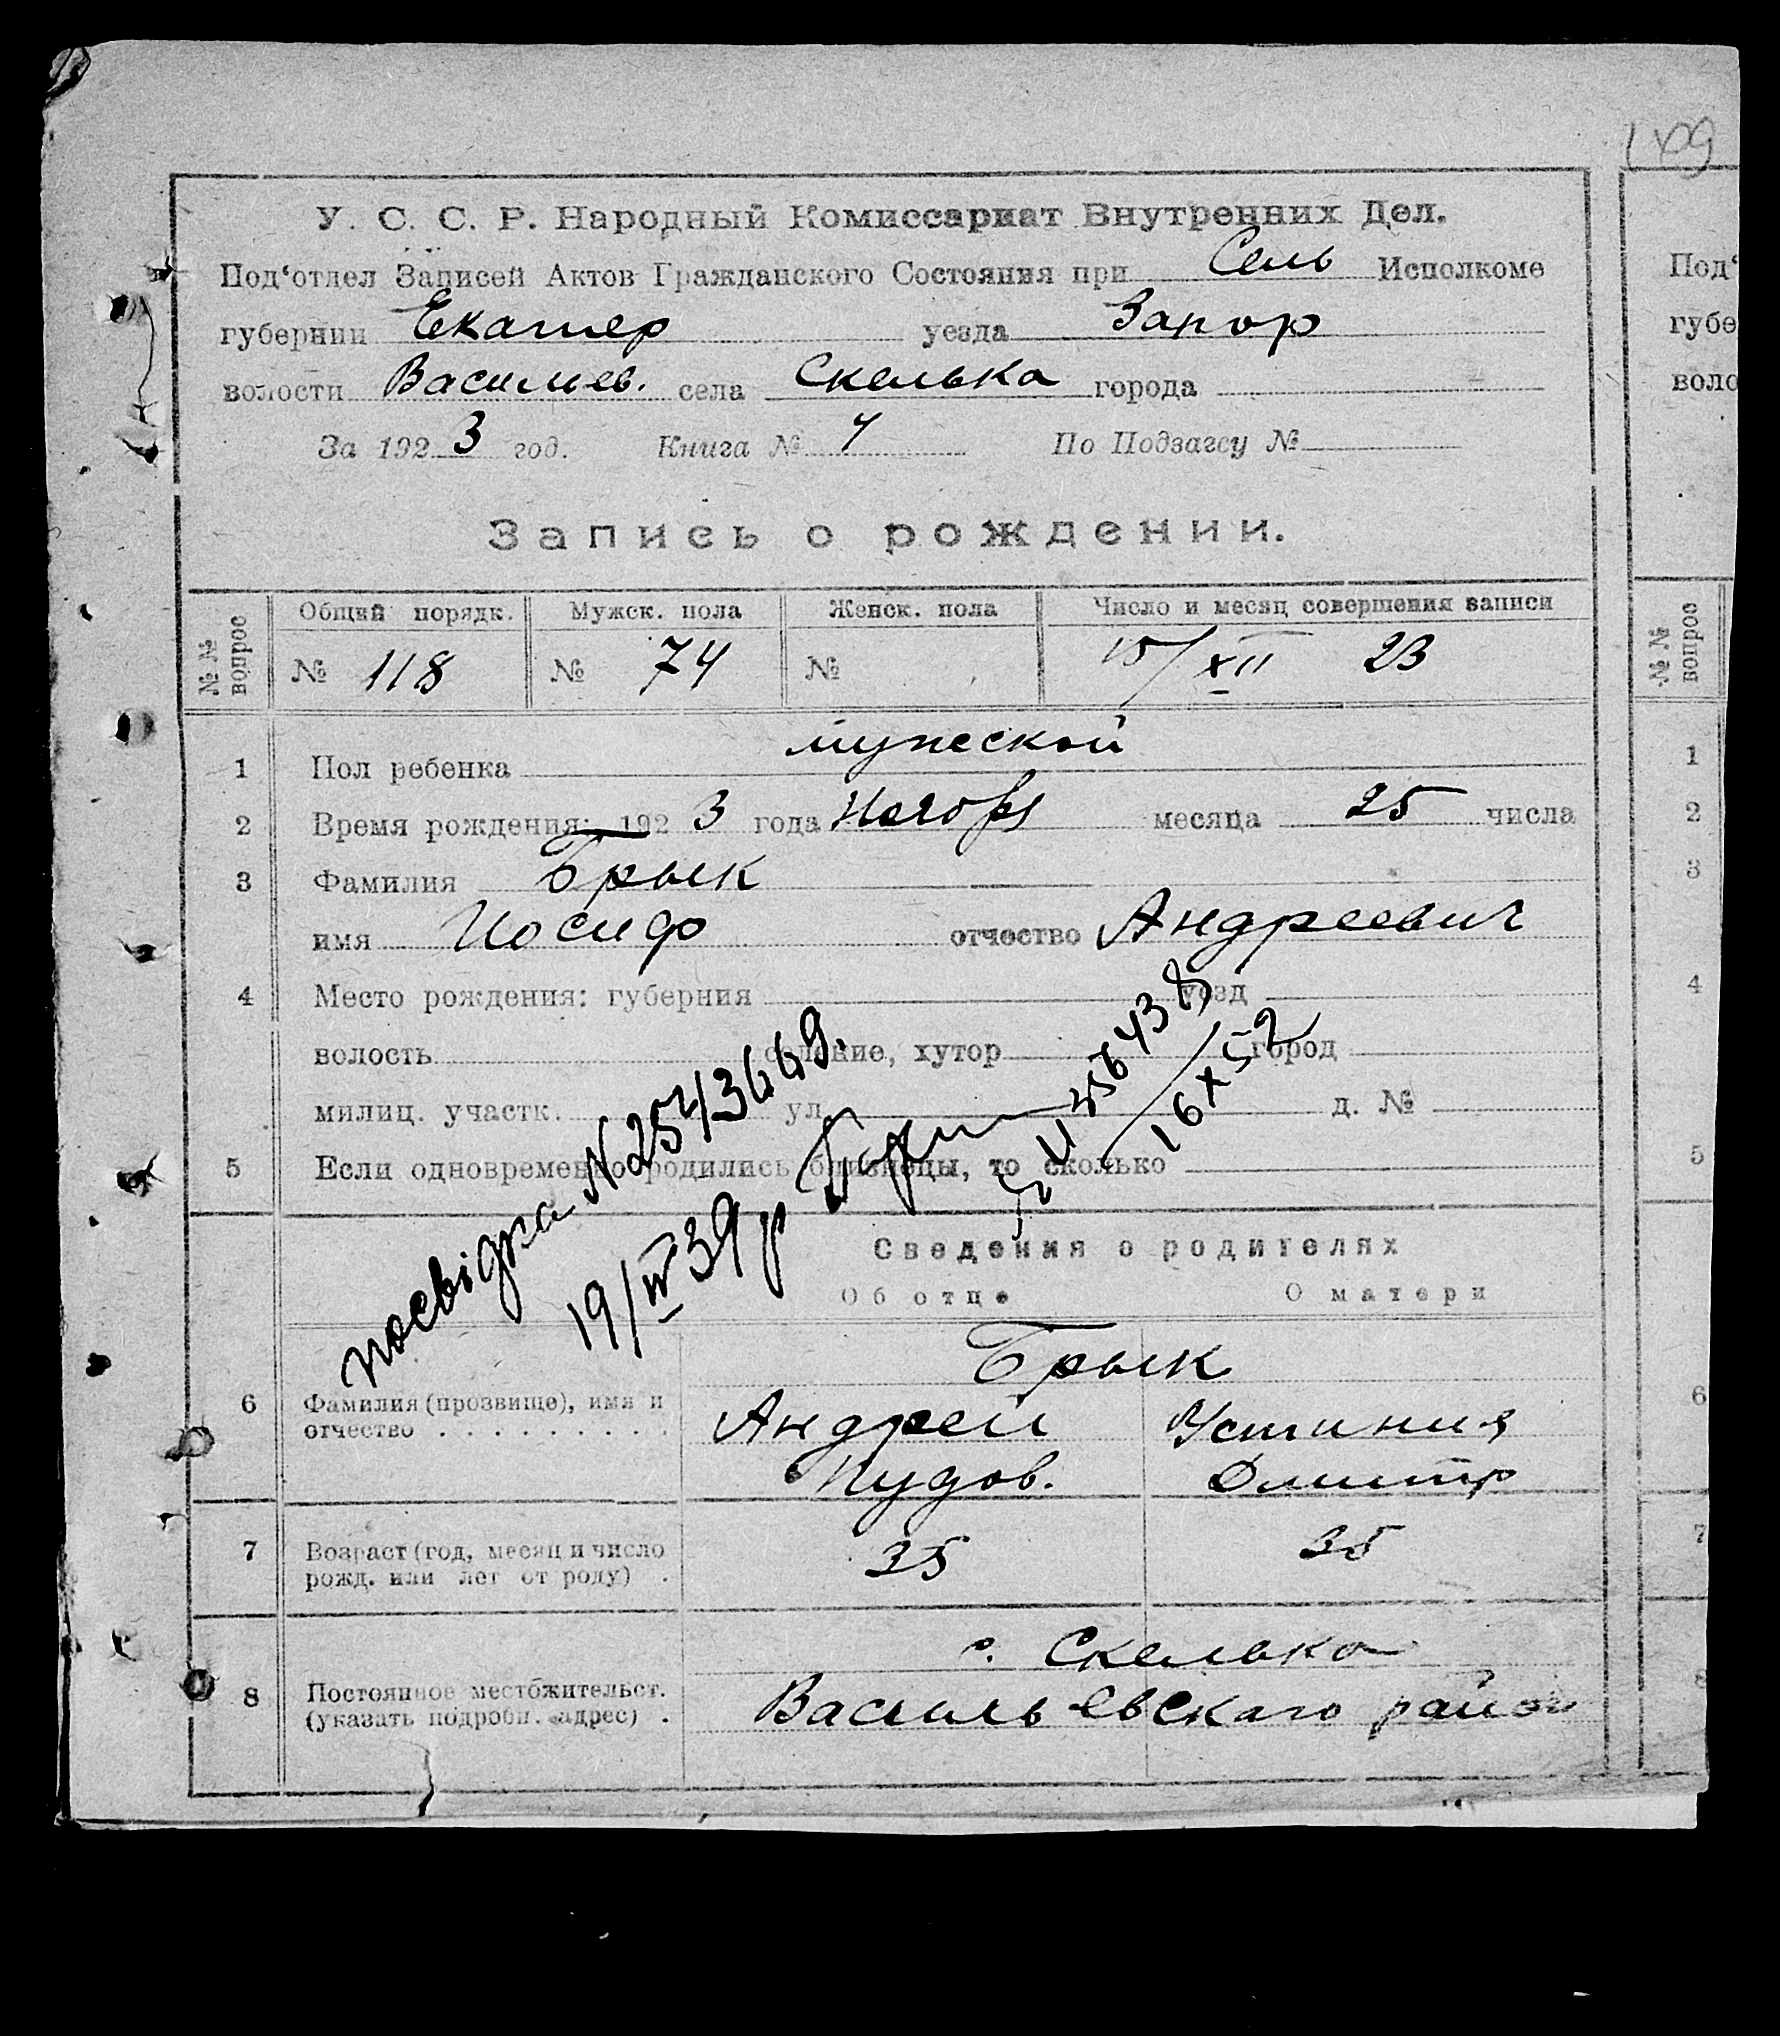 109
У. С. С. Р. Народный Комиссариат Внутренних Дел.
Под‘отдел Записей Актов Гражданского Состояния при Сель Исполкоме
губернии Екатер уезда Запор
волости Васильев. села Скелька города
За 192 3 год. Книга № По Подзагсу №
Запись о рождении.
№ № вопрос Общий порядк. Мужск. пола Женск. пола Число и месяц совершения записи
№ 118 № 74 № 15/XII 23
1 Пол ребенка мужеской
2 Время рождения: 192 3 года Ноября месяца 25 числа
3 Фамилия Брык
имя Иосиф отчество Андреевич
4 Место рождения: губерния уезд
волость селение, хутор город
милиц. участк. ул. д. №
5 Если одновременно родились близнецы, то сколько
посвідка N
19/IV 39 р
16 X 52
Сведения о родителях
Об отце О матери
Брык
6 Фамилия (прозвище), имя и отчество . . . . . . . . .
Андрей Устиния
Пудов. Дмитр
7 Возраст (год, месяц и число рожд. или лет от роду) .
35 35
8 Постоянное местожительст. (указать подробн. адрес) .
с. Скелька
Васильевскаго район
Под‘
губе
воло
№ № вопрос
1
2
3
4
5
6
7
8